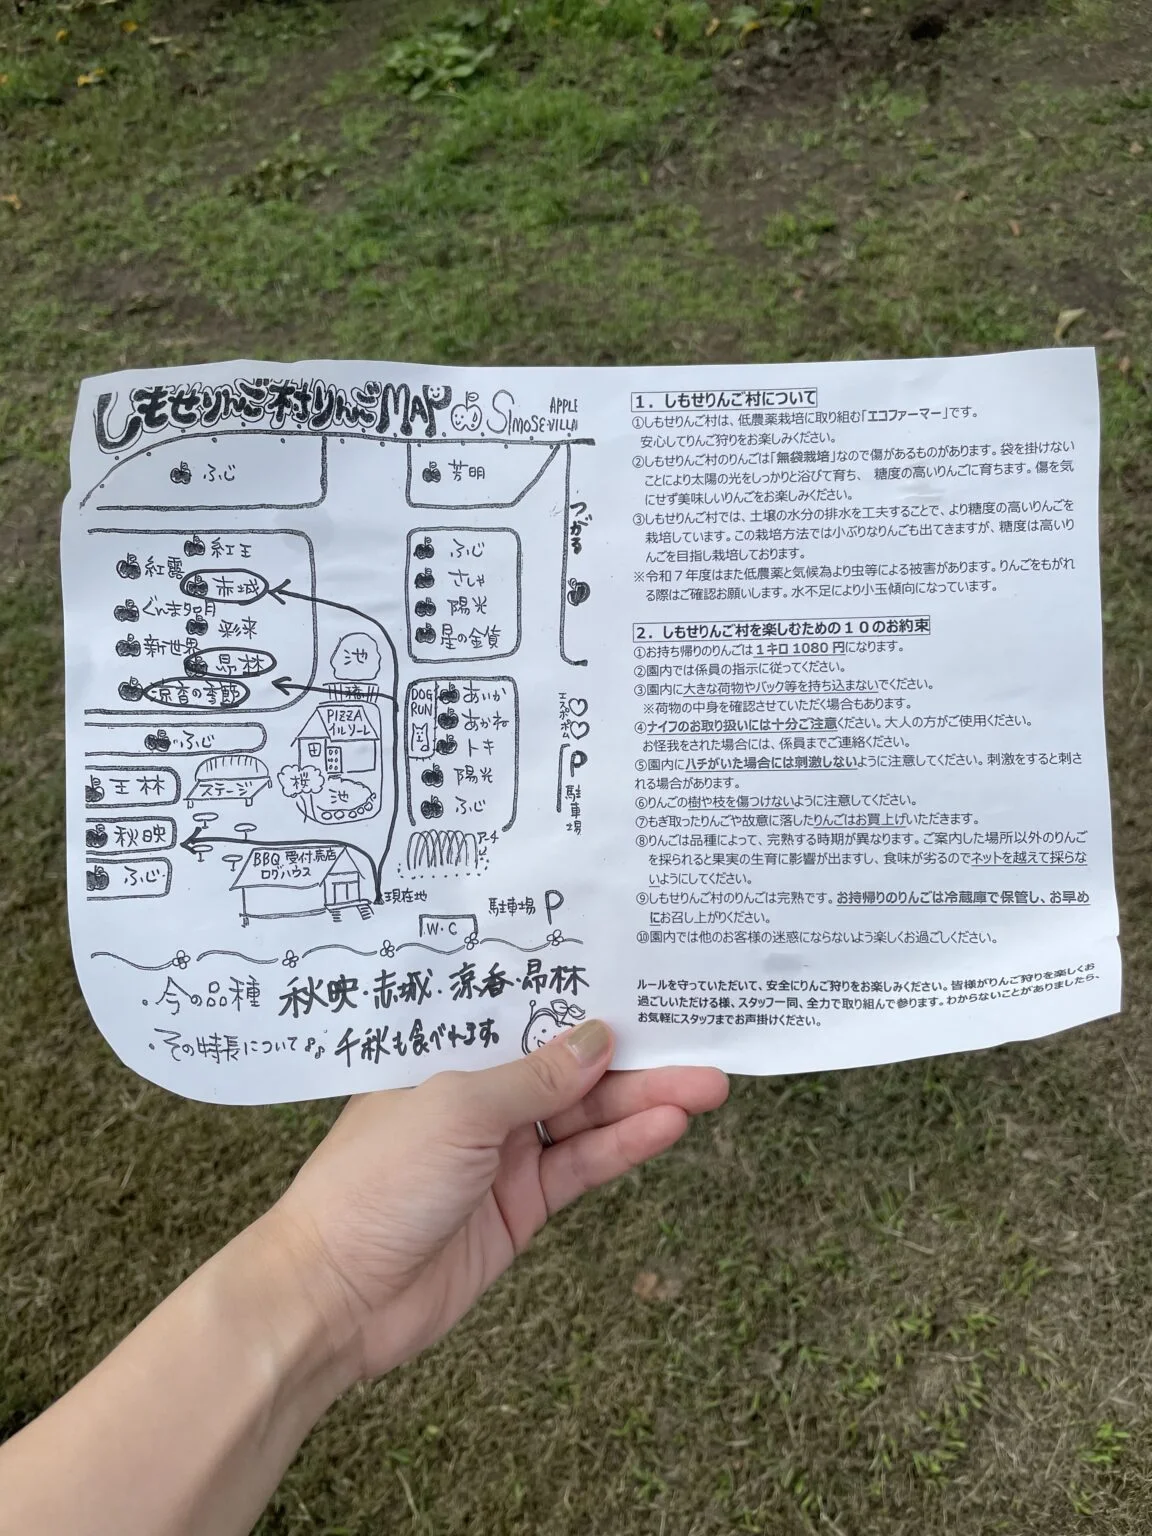 しもせりんご村りんごMAP
APPLE
SIMOSE.VILLA
ふじ
芳明
つがる
紅玉
紅露
赤城
ぐんま名月
彩来
新世界
昂林
涼香の季節
ふじ
王林
秋映
ふじ
ステージ
池
橋
PIZZA
イルソーレ
桜
池
BBQ 受付・売店
ログハウス
現在地
ふじ
さしゃ
陽光
星の金貨
DOG
RUN
あいか
あかね
トキ
陽光
ふじ
アーチ
P
駐車場
駐車場 P
W・C
・今の品種 秋映・赤城・涼香・昂林
・その特長について 千秋も食べれます。
1．しもせりんご村について
①しもせりんご村は、低農薬栽培に取り組む「エコファーマー」です。
安心してりんご狩りをお楽しみください。
②しもせりんご村のりんごは「無袋栽培」なので傷があるものがあります。袋を掛けない
ことにより太陽の光をしっかりと浴びて育ち、糖度の高いりんごに育ちます。傷を気
にせず美味しいりんごをお楽しみください。
③しもせりんご村では、土壌の水分の排水を工夫することで、より糖度の高いりんごを
栽培しています。この栽培方法では小ぶりなりんごも出てきますが、糖度は高いり
んごを目指し栽培しております。
※令和７年度はまた低農薬と気候為より虫等による被害があります。りんごをもがれ
る際はご確認お願いします。水不足により小玉傾向になっています。
2．しもせりんご村を楽しむための１０のお約束
①お持ち帰りのりんごは１キロ 1080 円になります。
②園内では係員の指示に従ってください。
③園内に大きな荷物やバック等を持ち込まないでください。
※荷物の中身を確認させていただく場合もあります。
④ナイフのお取り扱いには十分ご注意ください。大人の方がご使用ください。
お怪我をされた場合には、係員までご連絡ください。
⑤園内にハチがいた場合には刺激しないように注意してください。刺激をすると刺さ
れる場合があります。
⑥りんごの樹や枝を傷つけないように注意してください。
⑦もぎ取ったりんごや故意に落したりんごはお買上げいただきます。
⑧りんごは品種によって、完熟する時期が異なります。ご案内した場所以外のりんご
を採られると果実の生育に影響が出ますし、食味が劣るのでネットを越えて採らな
いようにしてください。
⑨しもせりんご村のりんごは完熟です。お持帰りのりんごは冷蔵庫で保管し、お早め
にお召し上がりください。
⑩園内では他のお客様の迷惑にならないよう楽しくお過ごしください。
ルールを守っていただいて、安全にりんご狩りをお楽しみください。皆様がりんご狩りを楽しくお
過ごしいただける様、スタッフ一同、全力で取り組んで参ります。わからないことがありましたら、
お気軽にスタッフまでお声掛けください。